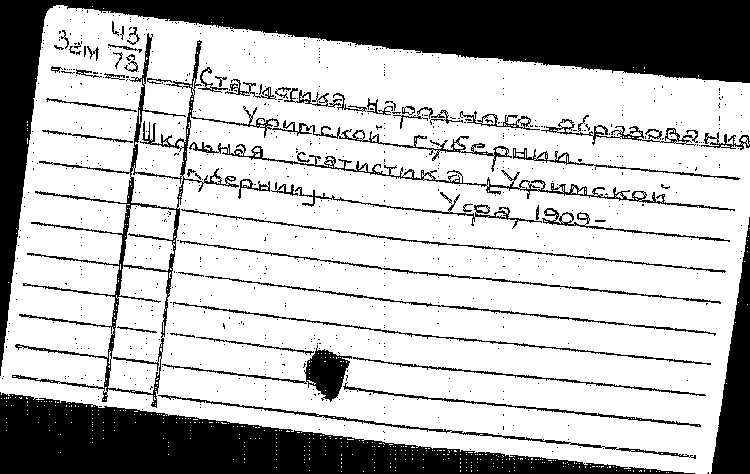 Зем 43/78
Статистика народного образования
Уфимской губернии.
Школьная статистика [Уфимской
губернии]... Уфа, 1909-